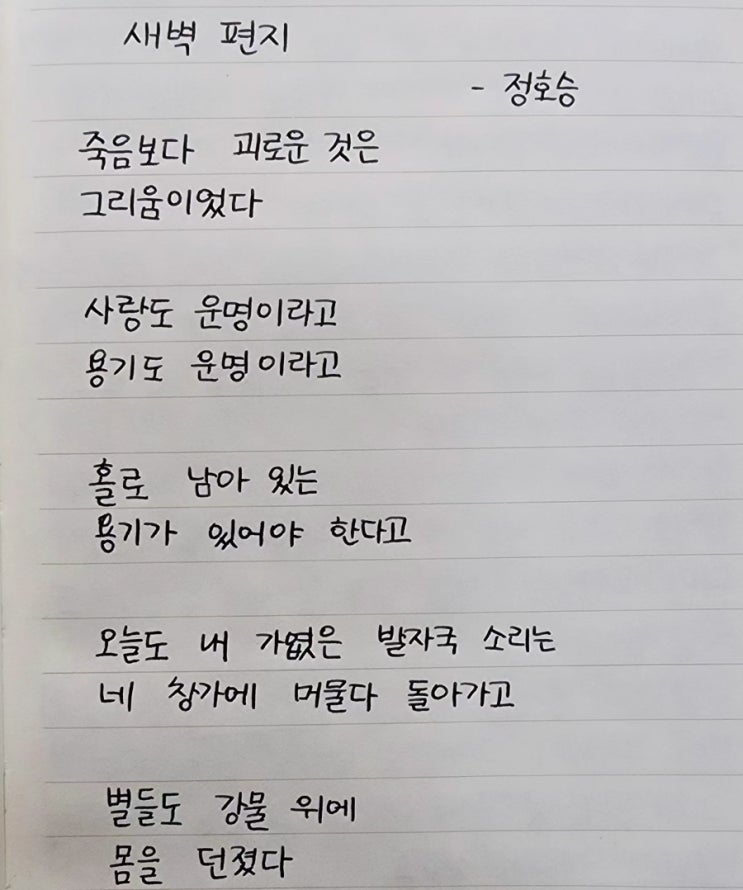 새벽 편지
- 정호승
죽음보다 괴로운 것은
그리움이었다
사랑도 운명이라고
용기도 운명이라고
홀로 남아 있는
용기가 있어야 한다고
오늘도 내 가엾은 발자국 소리는
네 창가에 머물다 돌아가고
별들도 강물 위에
몸을 던졌다